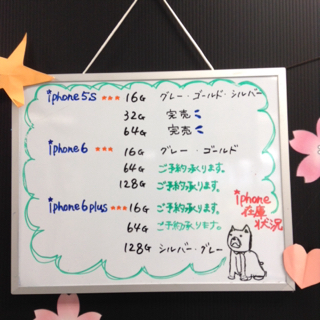 iphone5s *** 16G グレー・ゴールド・シルバー
32G 完売
64G 完売
iphone6 *** 16G グレー・ゴールド
64G ご予約承ります。
128G ご予約承ります。
iphone6plus *** 16G ご予約承ります。
64G ご予約承ります。
128G シルバー・グレー
iphone
在庫
状況